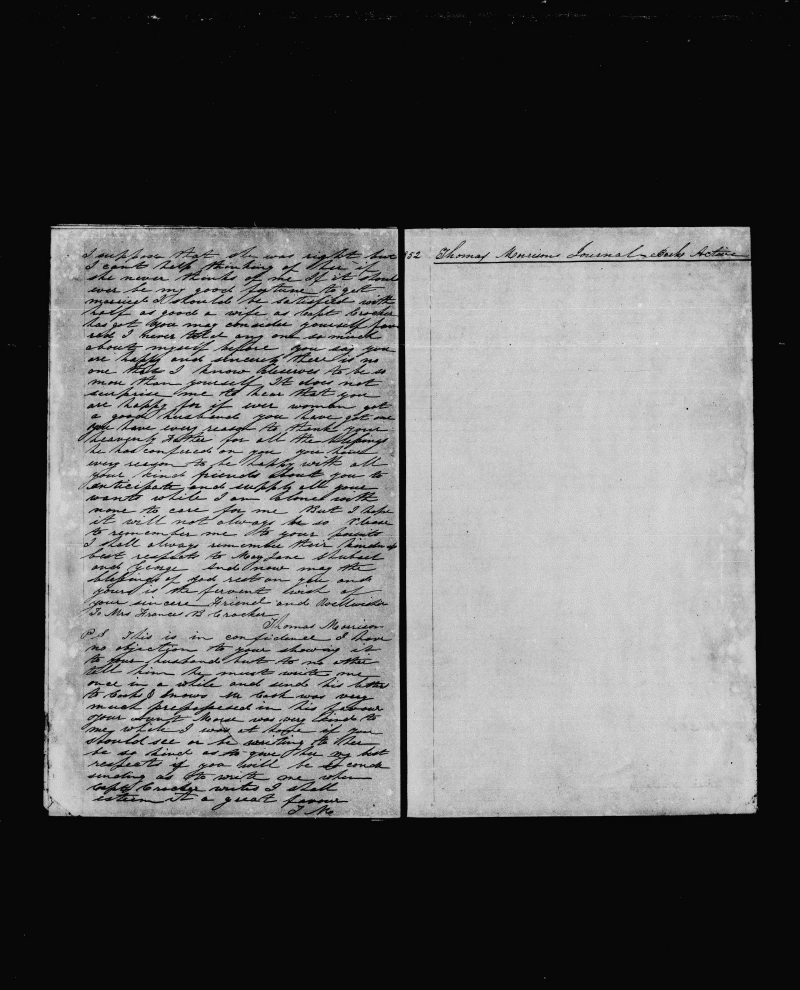 I suppose that she was right but
I cant help thinking of her if
she never thinks of me If it should
ever be my good fortune to get
married I should be satisfied with
half as good a wife as Capt Crocker
has got You may consider yourself favo
red I never told any one so much
about myself before you say you
are happy and sincerely there is no
one that I know deserves to be so
more than yourself It does not
surprise me to hear that you
are happy for if ever woman got
a good husband you have got one
you have every reason to thank your
heavenly Father for all the blessings
he has confered on you you have
every reason to be happy with all
your kind friends about you to
anticipate and supply all your
wants while I am alone with
none to care for me But I hope
it will not always be so Please
to remember me to your parents
I shall always remember their kindness
best respects to Mary Jane
and George And now may the
blessings of god rest on you and
yours is the fervent wish of
your sincere Friend and Wellwisher
To Mrs Frances B Crocker
Thomas Morrison
P.S This is in confidence I have
no objection to your showing it
to your husband but to no other
tell him he must write me
once in a while and send his letters
to Cooks I know Mr Cook was very
much prepossesed in his favour
your Aunt Morse was very kind to
me while I was at home if you
should see or be writing to her
be so kind as to give her my best
respects if you will be so conde
sending as to write me when
Capt Crocker writes I shall
esteem it a great favour
T Mo
852 Thomas Morrisons Journal Bark Active